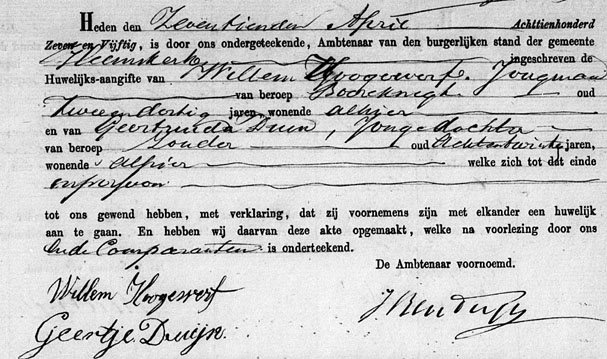 Heden den Zeventienden April Achttienhonderd
Zeven en Vijftig, is door ons ondergeteekende, Ambtenaar van den burgerlijken stand der gemeente
Heemskerk ingeschreven de
Huwelijks-aangifte van Willem Hoogewerf. Jongman
van beroep Boereknegt oud
twee en dertig jaren, wonende alhier
en van Geertruida Duin, Jonge dochter
van beroep zonder oud Achtentwintig jaren,
wonende alhier welke zich tot dat einde
in persoon
tot ons gewend hebben, met verklaring, dat zij voornemens zijn met elkander een huwelijk
aan te gaan. En hebben wij daarvan deze akte opgemaakt, welke na voorlezing door ons
en de Comparanten is onderteekend.
De Ambtenaar voornoemd.
Willem Hoogewerf
Geertje Duijn.